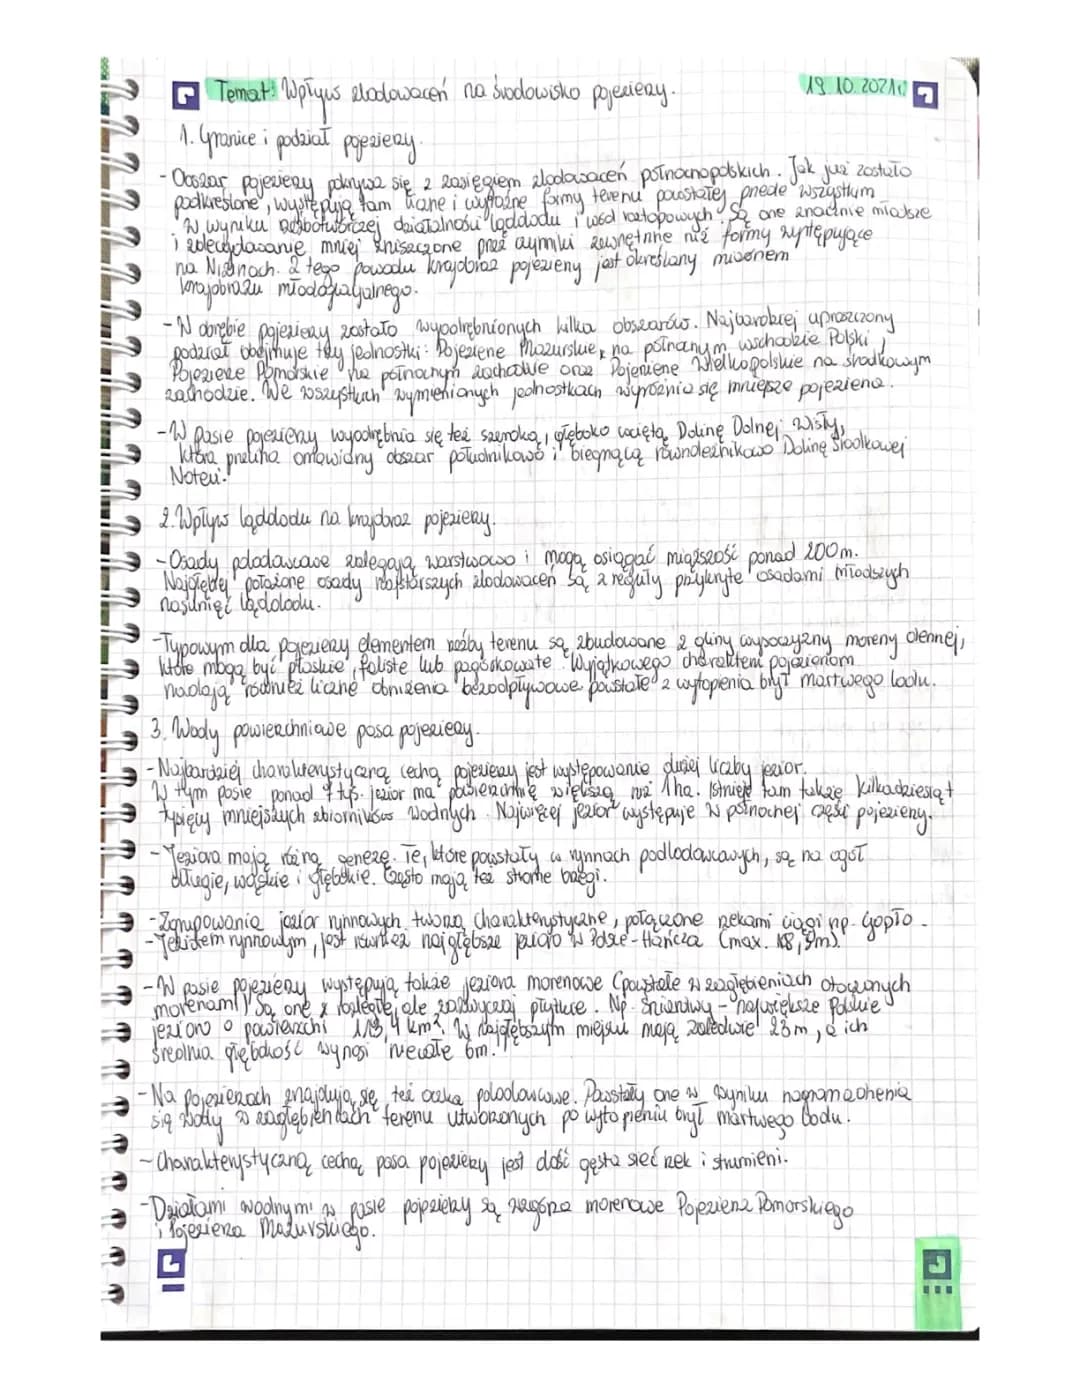 Temat: Wpływ zlodowaceń na środowisko pojezierzy. 19.10.2021r
1. Granice i podział pojezierzy.
- Obszar pojezierzy pokrywa się z zasięgiem zlodowaceń północnopolskich. Jak już zostało
podkreślone, występują tam liczne i wyraźne formy terenu powstałej przede wszystkim
w wyniku rzeźbotwórczej działalności lądolodu i wód roztopowych. Są one znacznie młodsze
i zdecydowanie mniej zniszczone przez czynniki zewnętrzne niż formy występujące
na Nizinach. Z tego powodu krajobraz pojezierzy jest określany mianem
krajobrazu młodoglacjalnego.
- W obrębie pojezierzy zostało wyodrębnionych kilka obszarów. Najbardziej uproszczony
podział obejmuje trzy jednostki: Pojezierze Mazurskie, na północnym wschodzie Polski,
Pojezierze Pomorskie na północnym zachodzie oraz Pojezierze Wielkopolskie na środkowym
zachodzie. We wszystkich wymienionych jednostkach wyróżnia się mniejsze pojezierza.
- W pasie pojezierzy wyodrębnia się też szeroką, głęboko wciętą Dolinę Dolnej Wisły,
która przecina omawiany obszar południkowo i biegnącą równoleżnikowo Dolinę Środkowej
Noteci.
2. Wpływ lądolodu na krajobraz pojezierzy.
- Osady polodowcowe zalegają warstwowo i mogą osiągać miąższość ponad 200m.
Najgłębiej położone osady najstarszych zlodowaceń są z reguły przykryte osadami młodszych
nasunięć lądolodu.
- Typowym dla pojezierzy elementem rzeźby terenu są zbudowane z gliny wysoczyzny moreny dennej,
które mogą być płaskie, faliste lub pagórkowate. Wyjątkowego charakteru pojezierzom
nadają również liczne obniżenia bezodpływowe powstałe z wytopienia brył martwego lodu.
3. Wody powierzchniowe pasa pojezierzy.
- Najbardziej charakterystyczną cechą pojezierzy jest występowanie dużej liczby jezior.
W tym pasie ponad 7 tyś. jezior ma powierzchnię większą niż 1ha. Istnieje tam także kilkadziesiąt
tysięcy mniejszych zbiorników wodnych. Najwięcej jezior występuje w północnej części pojezierzy.
- Jeziora mają różną genezę. Te, które powstały w rynnach podlodowcowych, są na ogół
długie, wąskie i głębokie. Często mają też strome brzegi.
- Zgrupowania jezior rynnowych tworzą charakterystyczne, połączone rzekami ciągi np. Gopło.
- Jeziorem rynnowym, jest również najgłębsze jezioro w Polsce - Hańcza (max. 108,5m).
- W pasie pojezierzy występują także jeziora morenowe (powstałe w zagłębieniach otoczonych
morenami) Są one rozległe, ale zazwyczaj płytkie. Np. Śniardwy - największe Polskie
jezioro o powierzchi 113,4 km². W najgłębszym miejscu mają zaledwie 23m, a ich
średnia głębokość wynosi niecałe 6m.
- Na pojezierzach znajdują się też oczka polodowcowe. Powstały one w wyniku nagromadzenia
się wody w zagłębieniach terenu utworzonych po wytopieniu brył martwego lodu.
- Charakterystyczną cechą pasa pojezierzy jest dość gęsta sieć rzek i strumieni.
- Działami wodnymi w pasie pojezierzy są wzgórza morenowe Pojezierza Pomorskiego
i Pojezierza Mazurskiego.